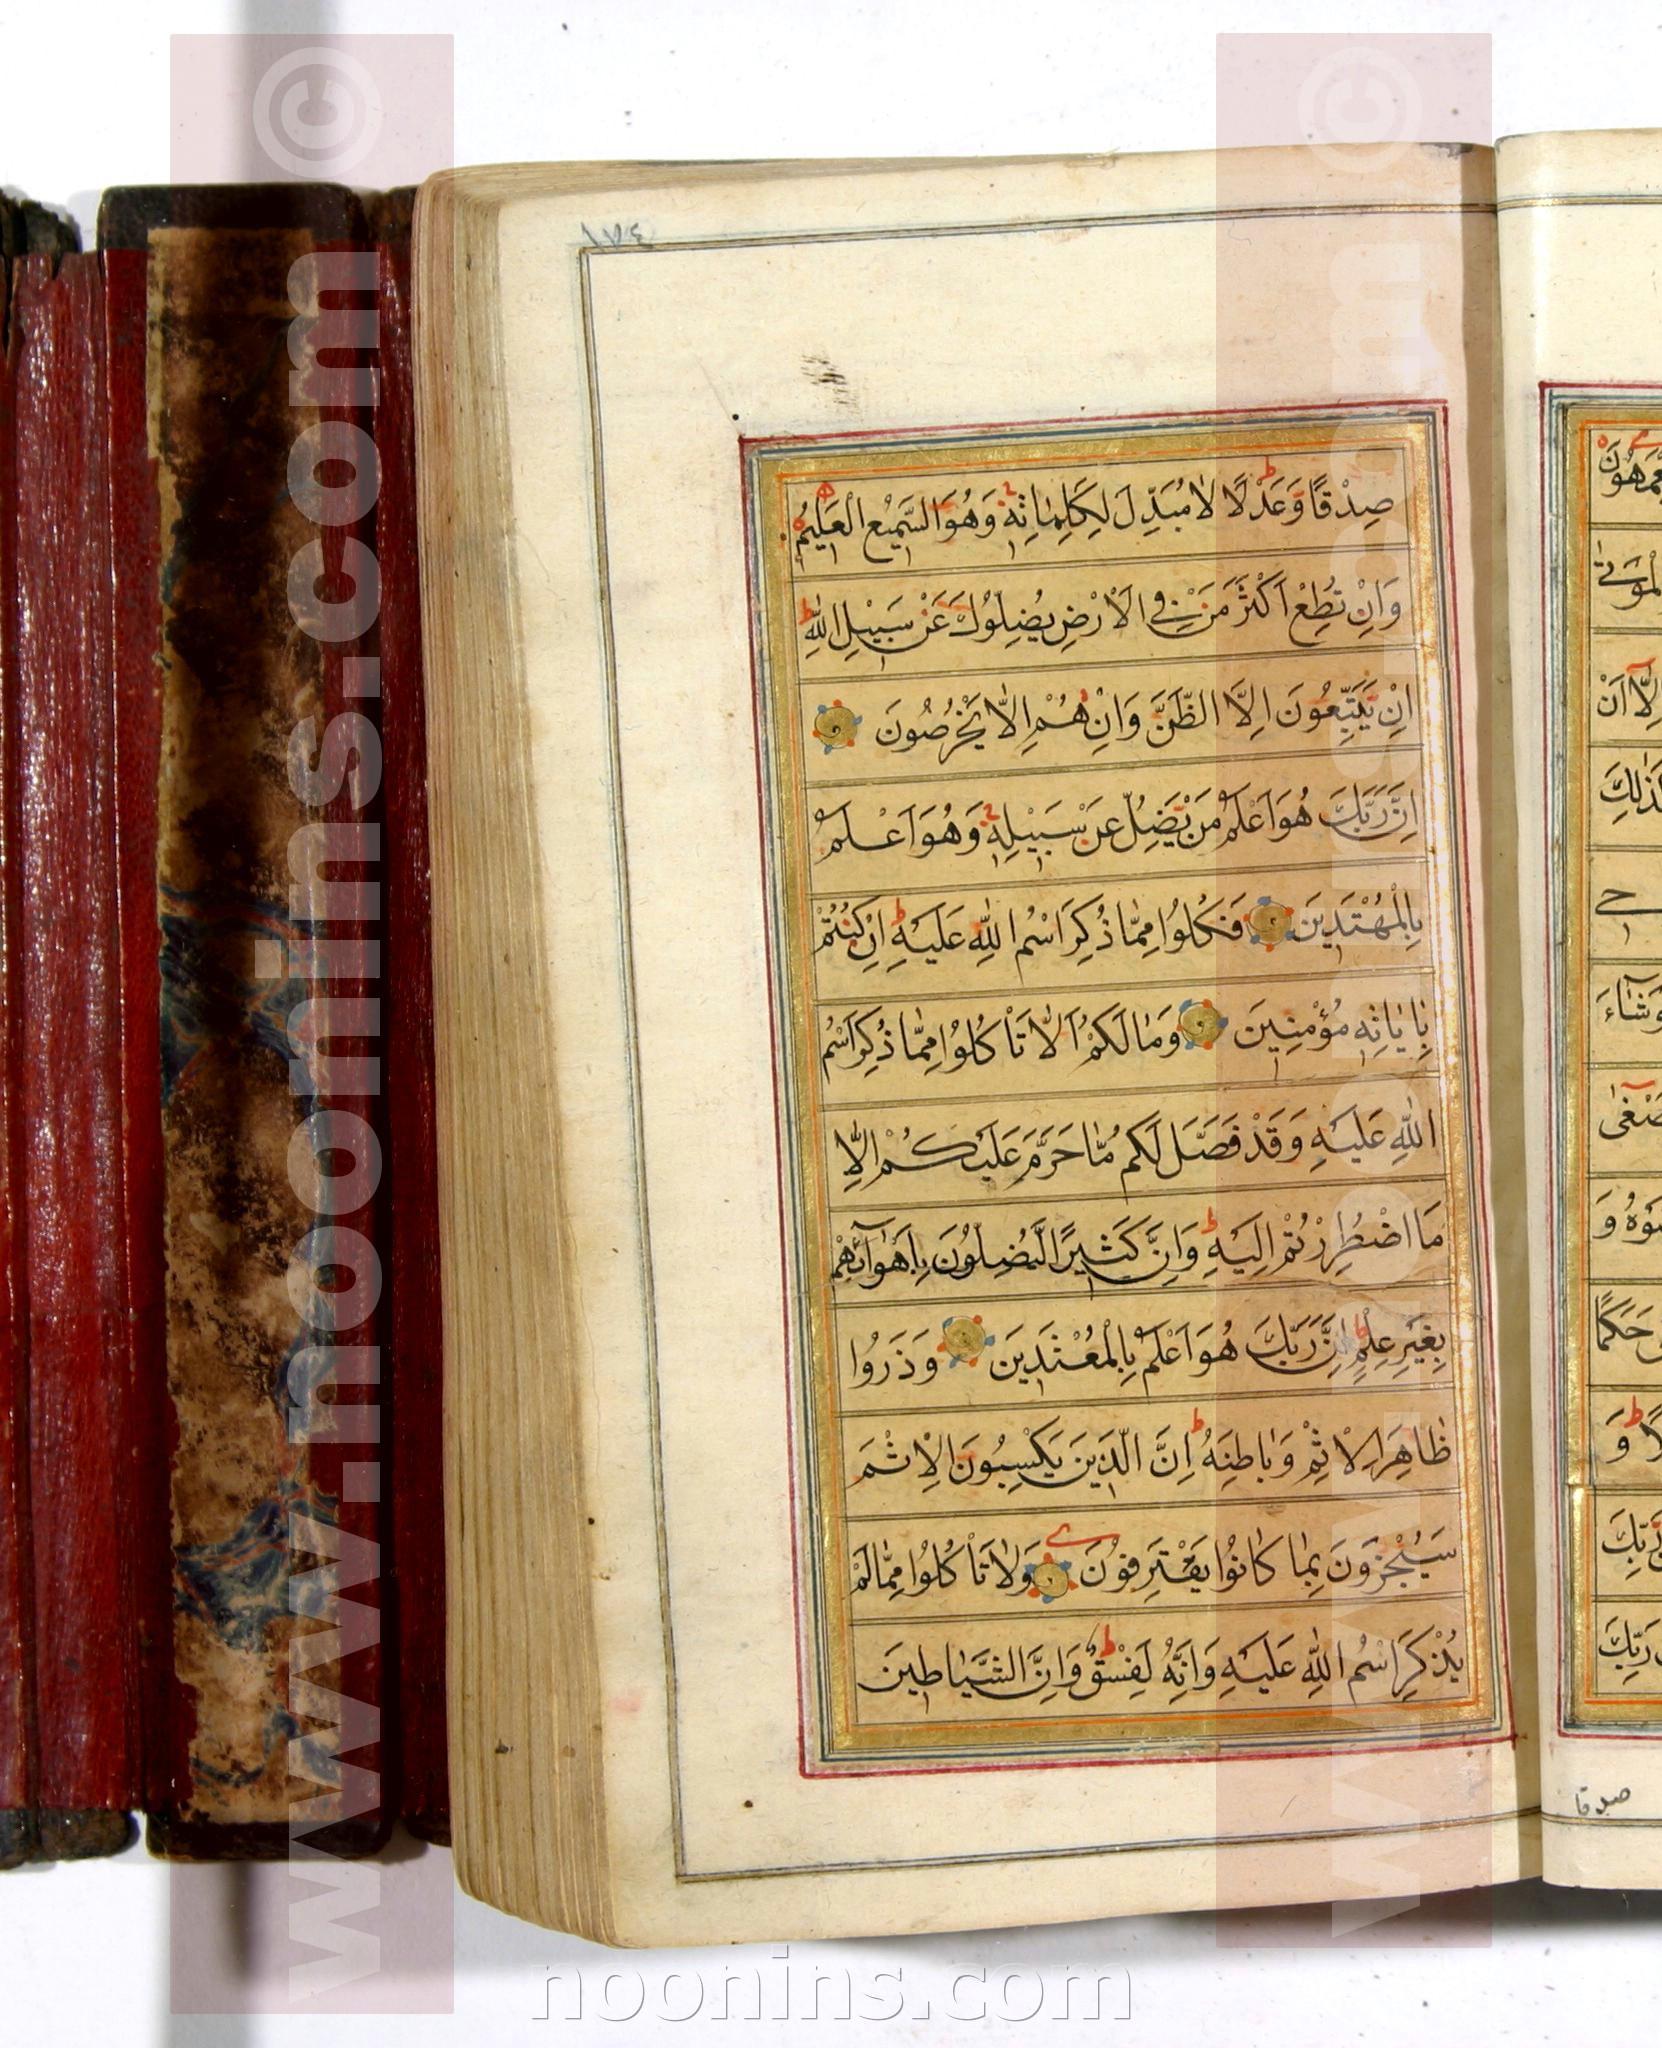 ١٧٤
صِدْقًا وَعَدْلًا لَا مُبَدِّلَ لِكَلِمَاتِهِ وَهُوَ السَّمِيعُ الْعَلِيمُ
وَاِنْ تُطِعْ اَكْثَرَ مَنْ فِي الْاَرْضِ يُضِلُّوكَ عَنْ سَبِيْلِ اللّٰهِ
اِنْ يَتَّبِعُونَ اِلَّا الظَّنَّ وَاِنْ هُمْ اِلَّا يَخْرُصُونَ
اِنَّ رَبَّكَ هُوَ اَعْلَمُ مَنْ يَضِلُّ عَنْ سَبِيْلِهِ وَهُوَ اَعْلَمُ
بِالْمُهْتَدِينَ فَكُلُوا مِمَّا ذُكِرَ اسْمُ اللّٰهِ عَلَيْهِ اِنْ كُنْتُمْ
بِاٰيَاتِهِ مُؤْمِنِينَ وَمَا لَكُمْ اَلَّا تَاْكُلُوا مِمَّا ذُكِرَ اسْمُ
اللّٰهِ عَلَيْهِ وَقَدْ فَصَّلَ لَكُمْ مَّا حَرَّمَ عَلَيْكُمْ اِلَّا
مَا اضْطُرِرْتُمْ اِلَيْهِ وَاِنَّ كَثِيرًا لَّيُضِلُّونَ بِاَهْوَآئِهِمْ
بِغَيْرِ عِلْمٍ اِنَّ رَبَّكَ هُوَ اَعْلَمُ بِالْمُعْتَدِينَ وَذَرُوا
ظَاهِرَ الْاِثْمِ وَبَاطِنَهُ اِنَّ الَّذِينَ يَكْسِبُونَ الْاِثْمَ
سَيُجْزَوْنَ بِمَا كَانُوا يَقْتَرِفُونَ وَلَا تَاْكُلُوا مِمَّا لَمْ
يُذْكَرِ اسْمُ اللّٰهِ عَلَيْهِ وَاِنَّهُ لَفِسْقٌ وَاِنَّ الشَّيَاطِينَ
صدقا
www.noonins.com ©
www.noonins.com ©
noonins.com